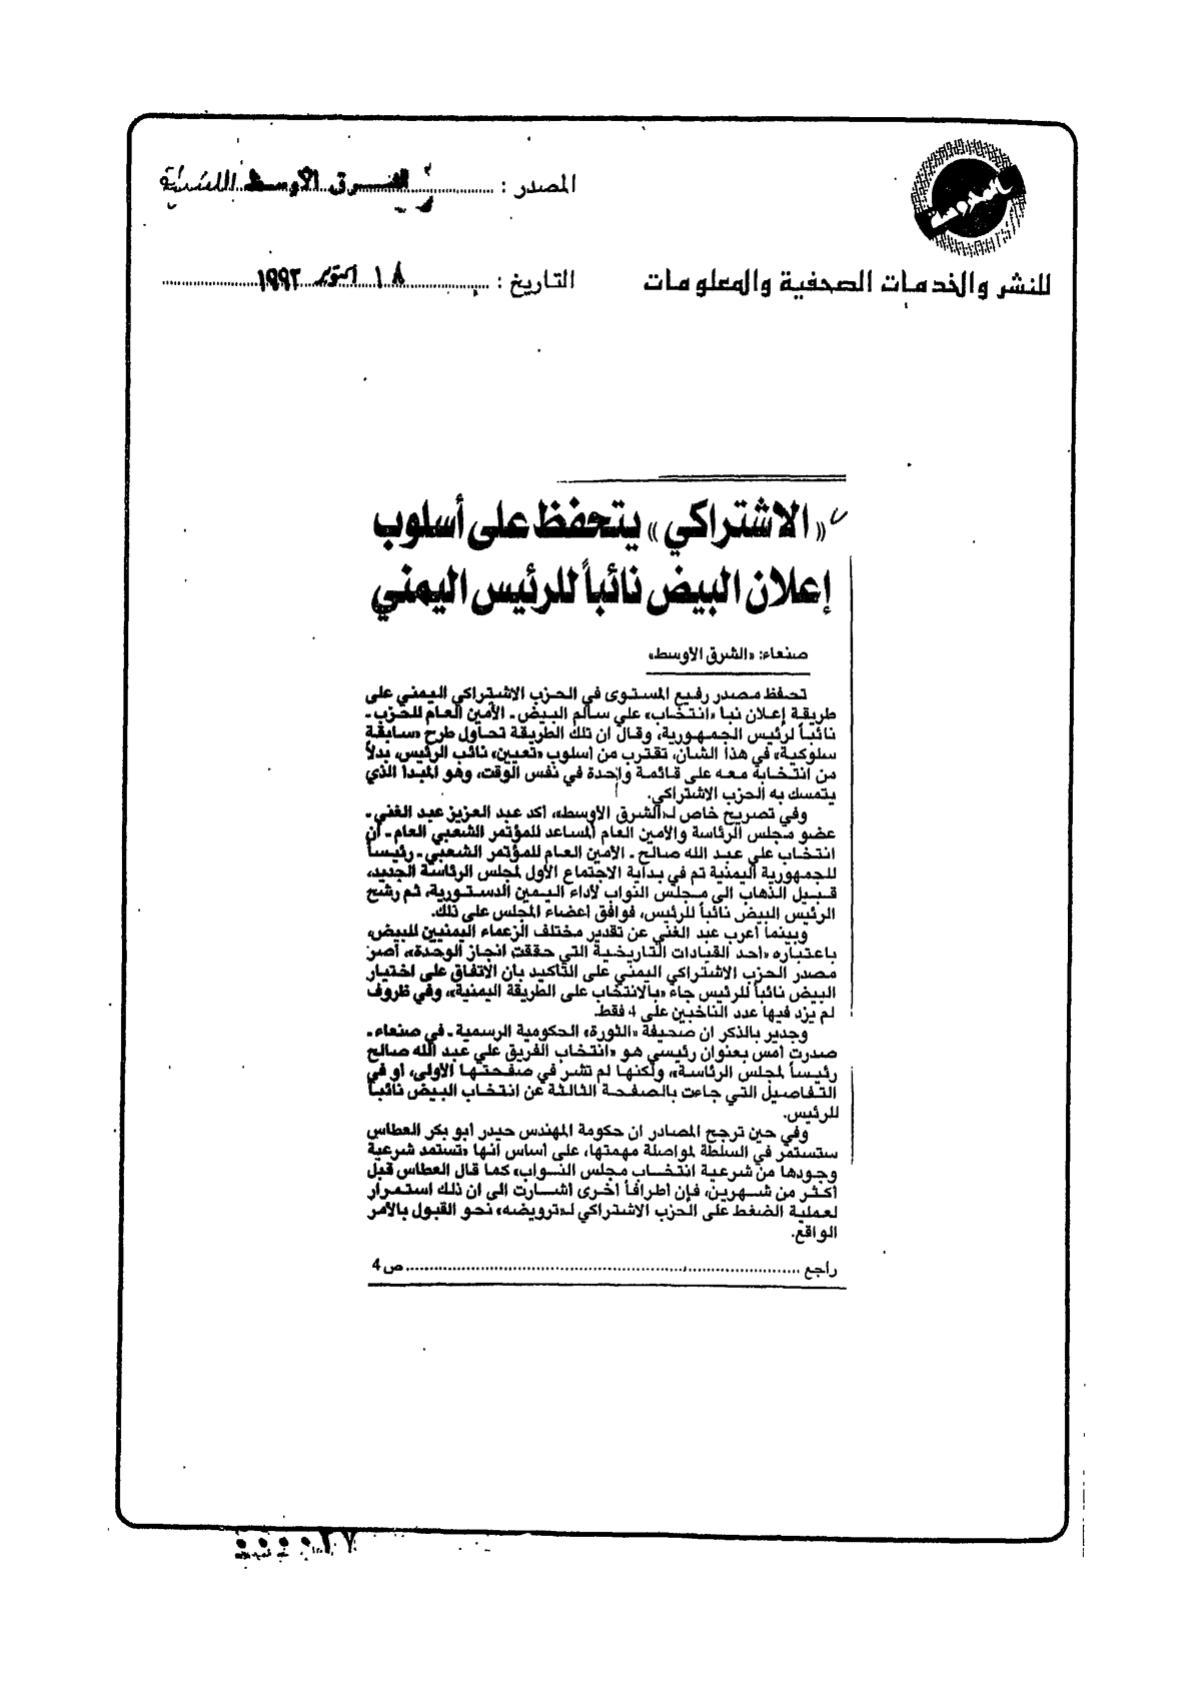 المصدر : الشرق الأوسط اللندنية
للنشر والخدمات الصحفية والمعلومات
التاريخ : ١٨ اكتوبر ١٩٩٣
«الاشتراكي» يتحفظ على أسلوب
إعلان البيض نائباً للرئيس اليمني
صنعاء: «الشرق الأوسط»
تحفظ مصدر رفيع المستوى في الحزب الاشتراكي اليمني على
طريقة إعلان نبا «انتخاب» علي سالم البيض ـ الأمين العام للحزب ـ
نائباً لرئيس الجمهورية، وقال ان تلك الطريقة تحاول طرح «سابقة
سلوكية» في هذا الشان، تقترب من اسلوب «تعيين» نائب الرئيس، بدلاً
من انتخابه معه على قائمة واحدة في نفس الوقت، وهو المبدا الذي
يتمسك به الحزب الاشتراكي.
وفي تصريح خاص لـ«الشرق الأوسط»، اكد عبد العزيز عبد الغني ـ
عضو مجلس الرئاسة والأمين العام المساعد للمؤتمر الشعبي العام ـ ان
انتخاب علي عبد الله صالح ـ الأمين العام للمؤتمر الشعبي ـ رئيساً
للجمهورية اليمنية تم في بداية الاجتماع الأول لمجلس الرئاسة الجديد،
قبيل الذهاب الى مجلس النواب لأداء اليمين الدستورية، ثم رشح
الرئيس البيض نائباً للرئيس، فوافق اعضاء المجلس على ذلك.
وبينما أعرب عبد الغني عن تقدير مختلف الزعماء اليمنيين للبيض،
باعتباره «احد القيادات التاريخية التي حققت انجاز الوحدة»، أصر
مصدر الحزب الاشتراكي اليمني على التاكيد بان الاتفاق على اختيار
البيض نائباً للرئيس جاء «بالانتخاب على الطريقة اليمنية»، وفي ظروف
لم يزد فيها عدد الناخبين على 4 فقط.
وجدير بالذكر ان صحيفة «الثورة» الحكومية الرسمية ـ في صنعاء ـ
صدرت أمس بعنوان رئيسي هو «انتخاب الفريق علي عبد الله صالح
رئيساً لمجلس الرئاسة»، ولكنها لم تشر في صفحتها الأولى، او في
التفاصيل التي جاءت بالصفحة الثالثة عن انتخاب البيض نائباً
للرئيس.
وفي حين ترجح المصادر ان حكومة المهندس حيدر ابو بكر العطاس
ستستمر في السلطة لمواصلة مهمتها، على اساس انها «تستمد شرعية
وجودها من شرعية انتخاب مجلس النواب» كما قال العطاس قبل
اكثر من شهرين، فإن اطرافاً اخرى اشارت الى ان ذلك استمرار
لعملية الضغط على الحزب الاشتراكي لـ«ترويضه» نحو القبول بالأمر
الواقع.
راجع ........ ص 4